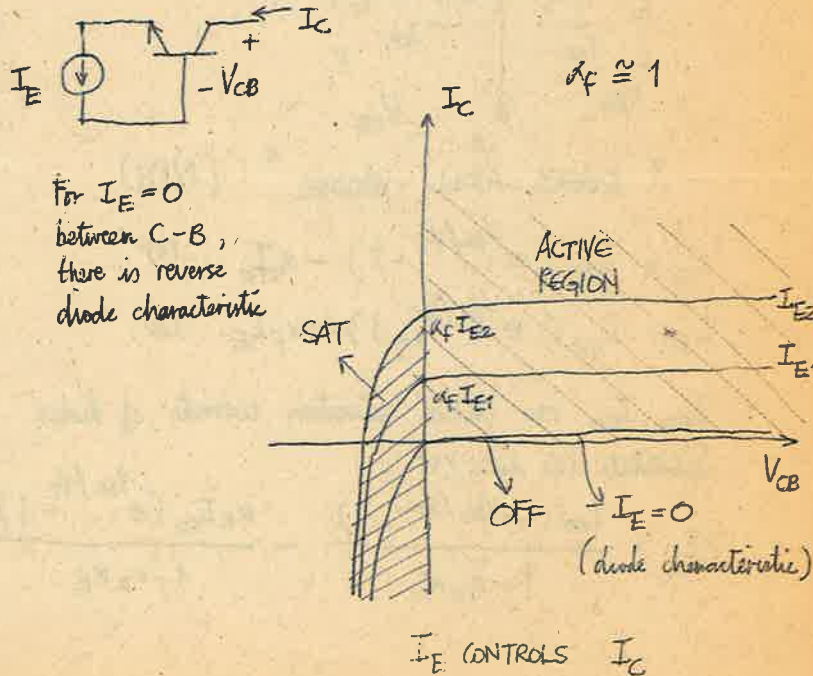 I_C
+
I_E
- V_CB
α_f ≅ 1
I_C
For I_E = 0
between C-B,
there is reverse
diode characteristic
ACTIVE
REGION
I_E2
SAT
α_f I_E2
I_E1
α_f I_E1
V_CB
OFF
I_E = 0
(diode characteristic)
I_E CONTROLS I_C